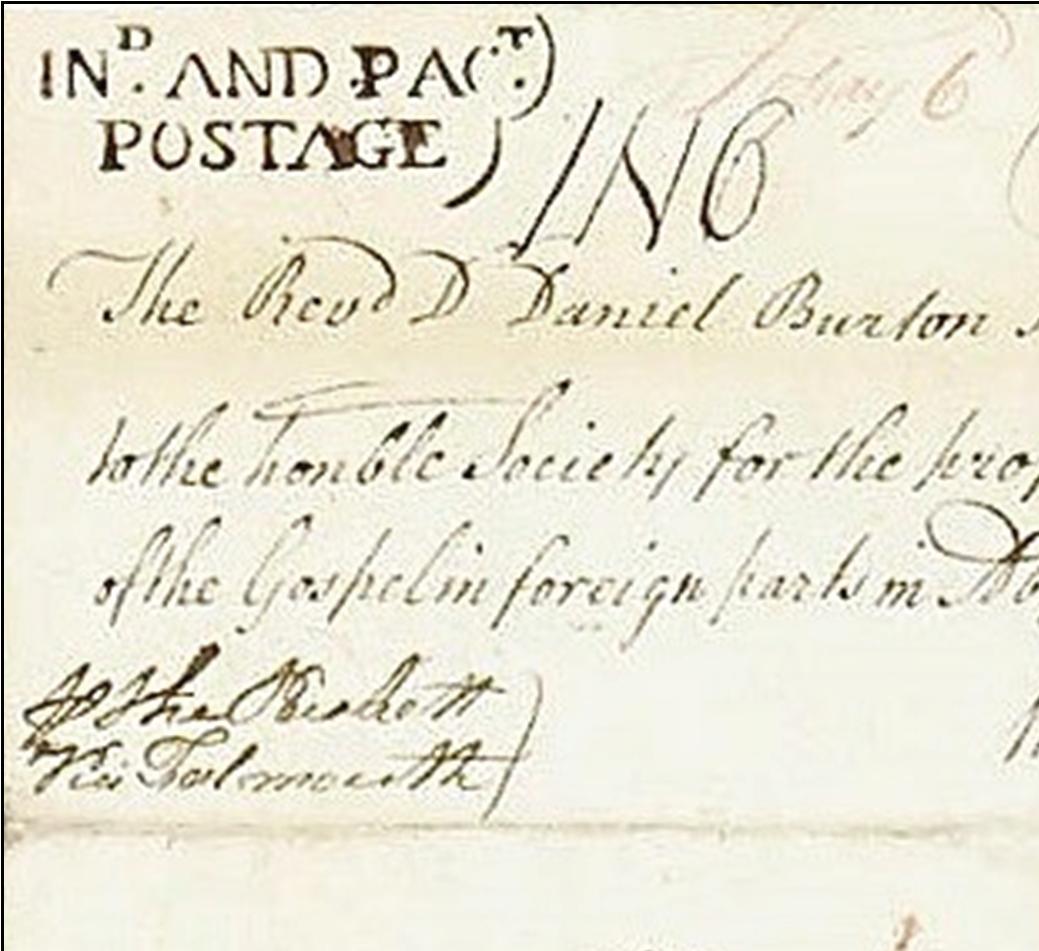 IN^D. AND PAC^T.)
POSTAGE ) 1N6
May 6
The Revd D Daniel Burton
to the honble Society for the prop
of the Gospel in foreign parts in
Falmouth